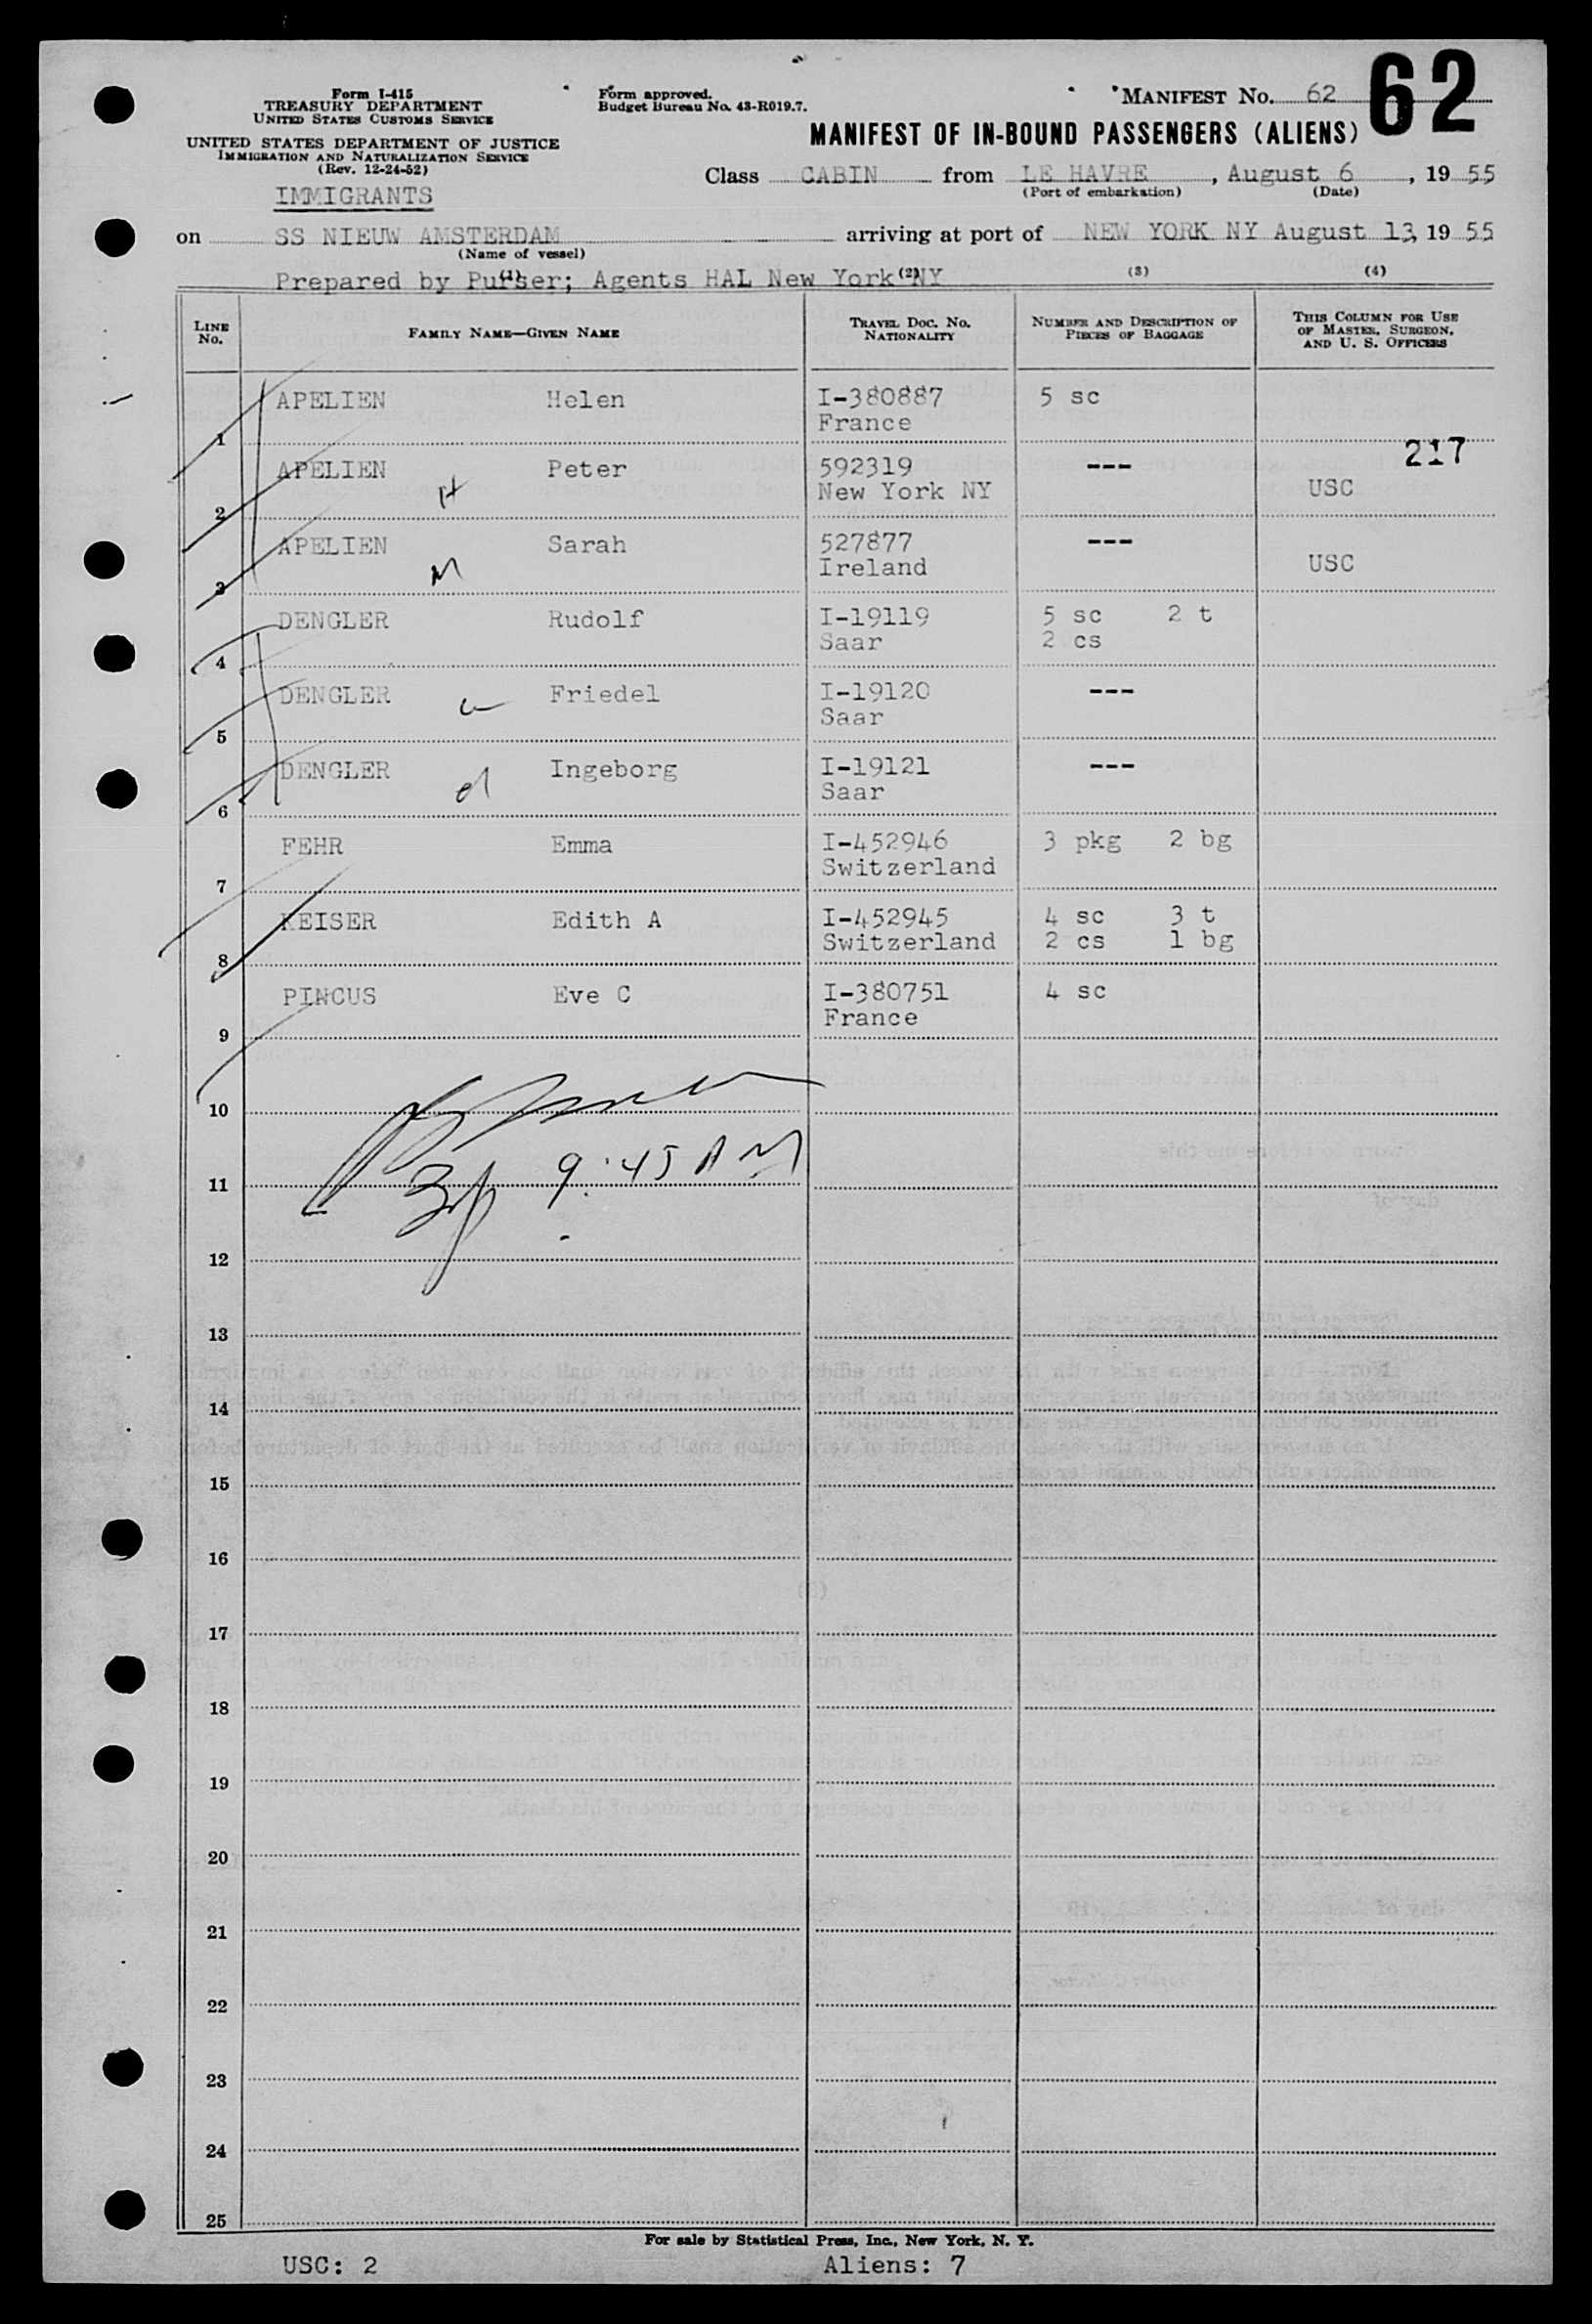 Form I-415
TREASURY DEPARTMENT
UNITED STATES CUSTOMS SERVICE
UNITED STATES DEPARTMENT OF JUSTICE
IMMIGRATION AND NATURALIZATION SERVICE
(Rev. 12-24-52)
IMMIGRANTS
Form approved.
Budget Bureau No. 43-R019.7.
MANIFEST No. 62
62
MANIFEST OF IN-BOUND PASSENGERS (ALIENS)
Class CABIN from LE HAVRE, August 6, 19 55
(Port of embarkation) (Date)
on SS NIEUW AMSTERDAM arriving at port of NEW YORK NY August 13, 19 55
(Name of vessel)
Prepared by Purser; Agents HAL New York NY
(1) (2) (3) (4)
LINE No. FAMILY NAME—GIVEN NAME TRAVEL DOC. NO. NATIONALITY NUMBER AND DESCRIPTION OF PIECES OF BAGGAGE THIS COLUMN FOR USE OF MASTER, SURGEON, AND U. S. OFFICERS
APELIEN Helen I-380887 5 sc
1 France
217
APELIEN Peter 592319 ---
2 H New York NY USC
APELIEN Sarah 527877 ---
3 M Ireland USC
DENGLER Rudolf I-19119 5 sc 2 t
4 Saar 2 cs
DENGLER Friedel I-19120 ---
5 Saar
DENGLER Ingeborg I-19121 ---
6 d Saar
FEHR Emma I-452946 3 pkg 2 bg
7 Switzerland
KEISER Edith A I-452945 4 sc 3 t
8 Switzerland 2 cs 1 bg
PINCUS Eve C I-380751 4 sc
9 France
10
11 9:45 AM
12
13
14
15
16
17
18
19
20
21
22
23
24
25
For sale by Statistical Press, Inc., New York, N. Y.
USC: 2 Aliens: 7